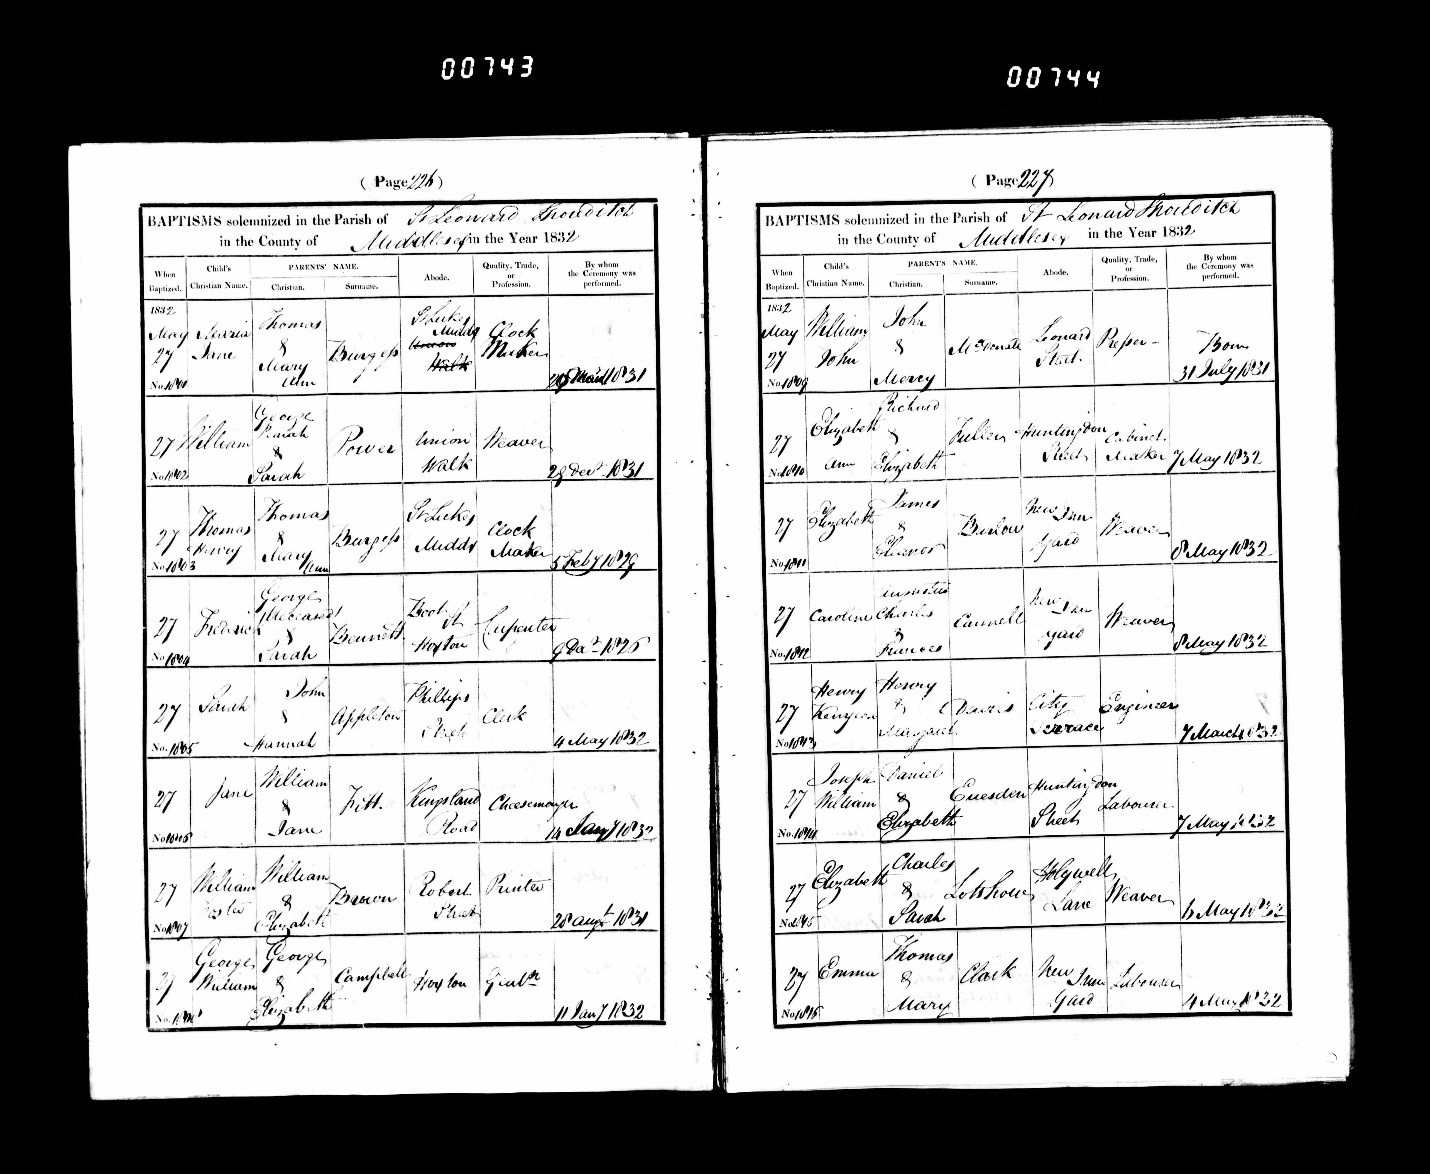 00743
00744
( Page 226 )
BAPTISMS solemnized in the Parish of St Leonard Shoreditch
in the County of Middlesex in the Year 1832
When
Baptized.
Child's
Christian Name.
PARENTS' NAME.
Christian.
Surname.
Abode.
Quality, Trade,
or
Profession.
By whom
the Ceremony was
performed.
1832
May
27
No. 1801
Maria
Jane
Thomas
&
Mary
Ann
Burgess
St Lukes
Middx
Union
Walk
Clock
Maker
1831
27
No. 1802
William
George
Sarah
&
Sarah
Power
Union
Walk
Weaver
28 Decr 1831
27
No. 1803
Thomas
Henry
Thomas
&
Mary
Ann
Burgess
St Lukes
Middx
Clock
Maker
5 Feby 1829
27
No. 1804
Frederick
George
(deceased)
&
Sarah
Bennett
Boot St
Hoxton
Carpenter
9 Decr 1826
27
No. 1805
Sarah
John
&
Hannah
Appleton
Phillips
Street
Clerk
4 May 1832
27
No. 1806
Jane
William
&
Jane
Fitt.
Kingsland
Road
Cheesemonger
14 Jany 1832
27
No. 1807
William
William
&
Elizabeth
Brown
Robert
Street
Printer
28 Augt 1831
27
No. 1808
George
William
George
&
Elizabeth
Campbell
Hoxton
Gentn
11 Jany 1832
( Page 227 )
BAPTISMS solemnized in the Parish of St Leonard Shoreditch
in the County of Middlesex in the Year 1832
When
Baptized.
Child's
Christian Name.
PARENT'S NAME.
Christian.
Surname.
Abode.
Quality, Trade,
or
Profession.
By whom
the Ceremony was
performed.
1832
May
27
No. 1809
William
John
John
&
Mercy
McDonald
Leonard
Street.
Presser
Born
31 July 1831
27
No. 1810
Elizabeth
Ann
Richard
&
Elizabeth
Fuller
Huntingdon
Street
Cabinet
Maker
7 May 1832
27
No. 1811
Elizabeth
James
&
Eleanor
Barlow
New Inn
Yard
Weaver
8 May 1832
27
No. 1812
Caroline
Charles
&
Frances
Cannell
New Inn
Yard
Weaver
8 May 1832
27
No. 1813
Henry
Kenyon
Henry
&
Margaret
Davis
City
Terrace
Engineer
7 March 1832
27
No. 1814
Joseph
William
Daniel
&
Elizabeth
Euesden
Huntingdon
Street
Labourer
7 May 1832
27
No. 1815
Elizabeth
Charles
&
Sarah
Lotshow
Holywell
Lane
Weaver
6 May 1832
27
No. 1816
Emma
Thomas
&
Mary
Clark
New Inn
Yard
Labourer
4 May 1832